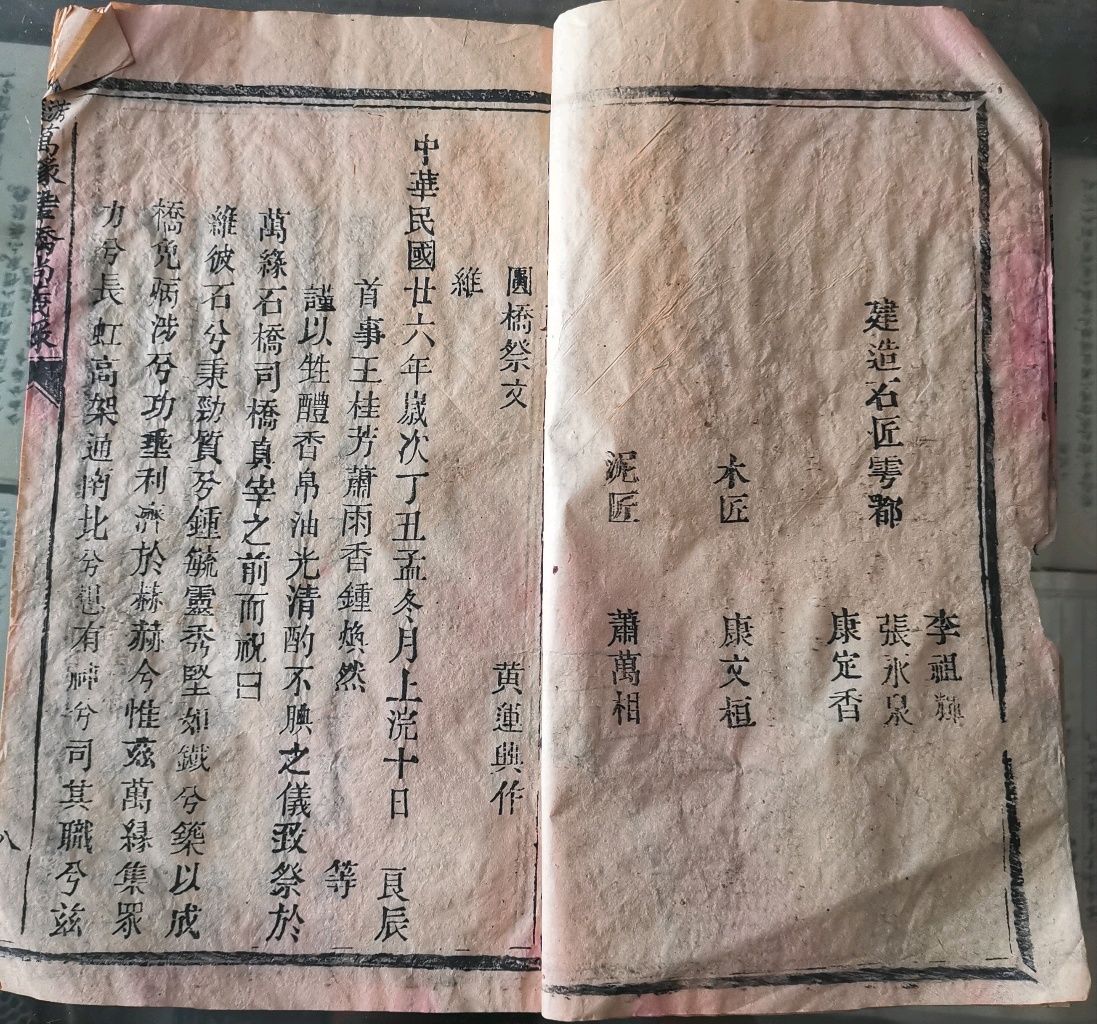 建造石匠雩都
李祖輝
張氷泉
康定香
木匠 康文桓
泥匠 蕭萬相
圓橋祭文 黄運興作
維
中華民國廿六年歲次丁丑孟冬月上浣十日 良辰
首事王桂芳蕭雨香鍾煥然 等
謹以牲醴香帛油光清酌不腆之儀致祭於
萬緣石橋司橋真宰之前而祝曰
維彼石兮秉勁質兮鍾毓靈秀堅如鐵兮築以成
橋免病涉兮功垂利濟於赫赫兮惟茲萬緣集眾
力兮長虹高架通南北兮惣有神兮司其職兮茲
萬緣
八